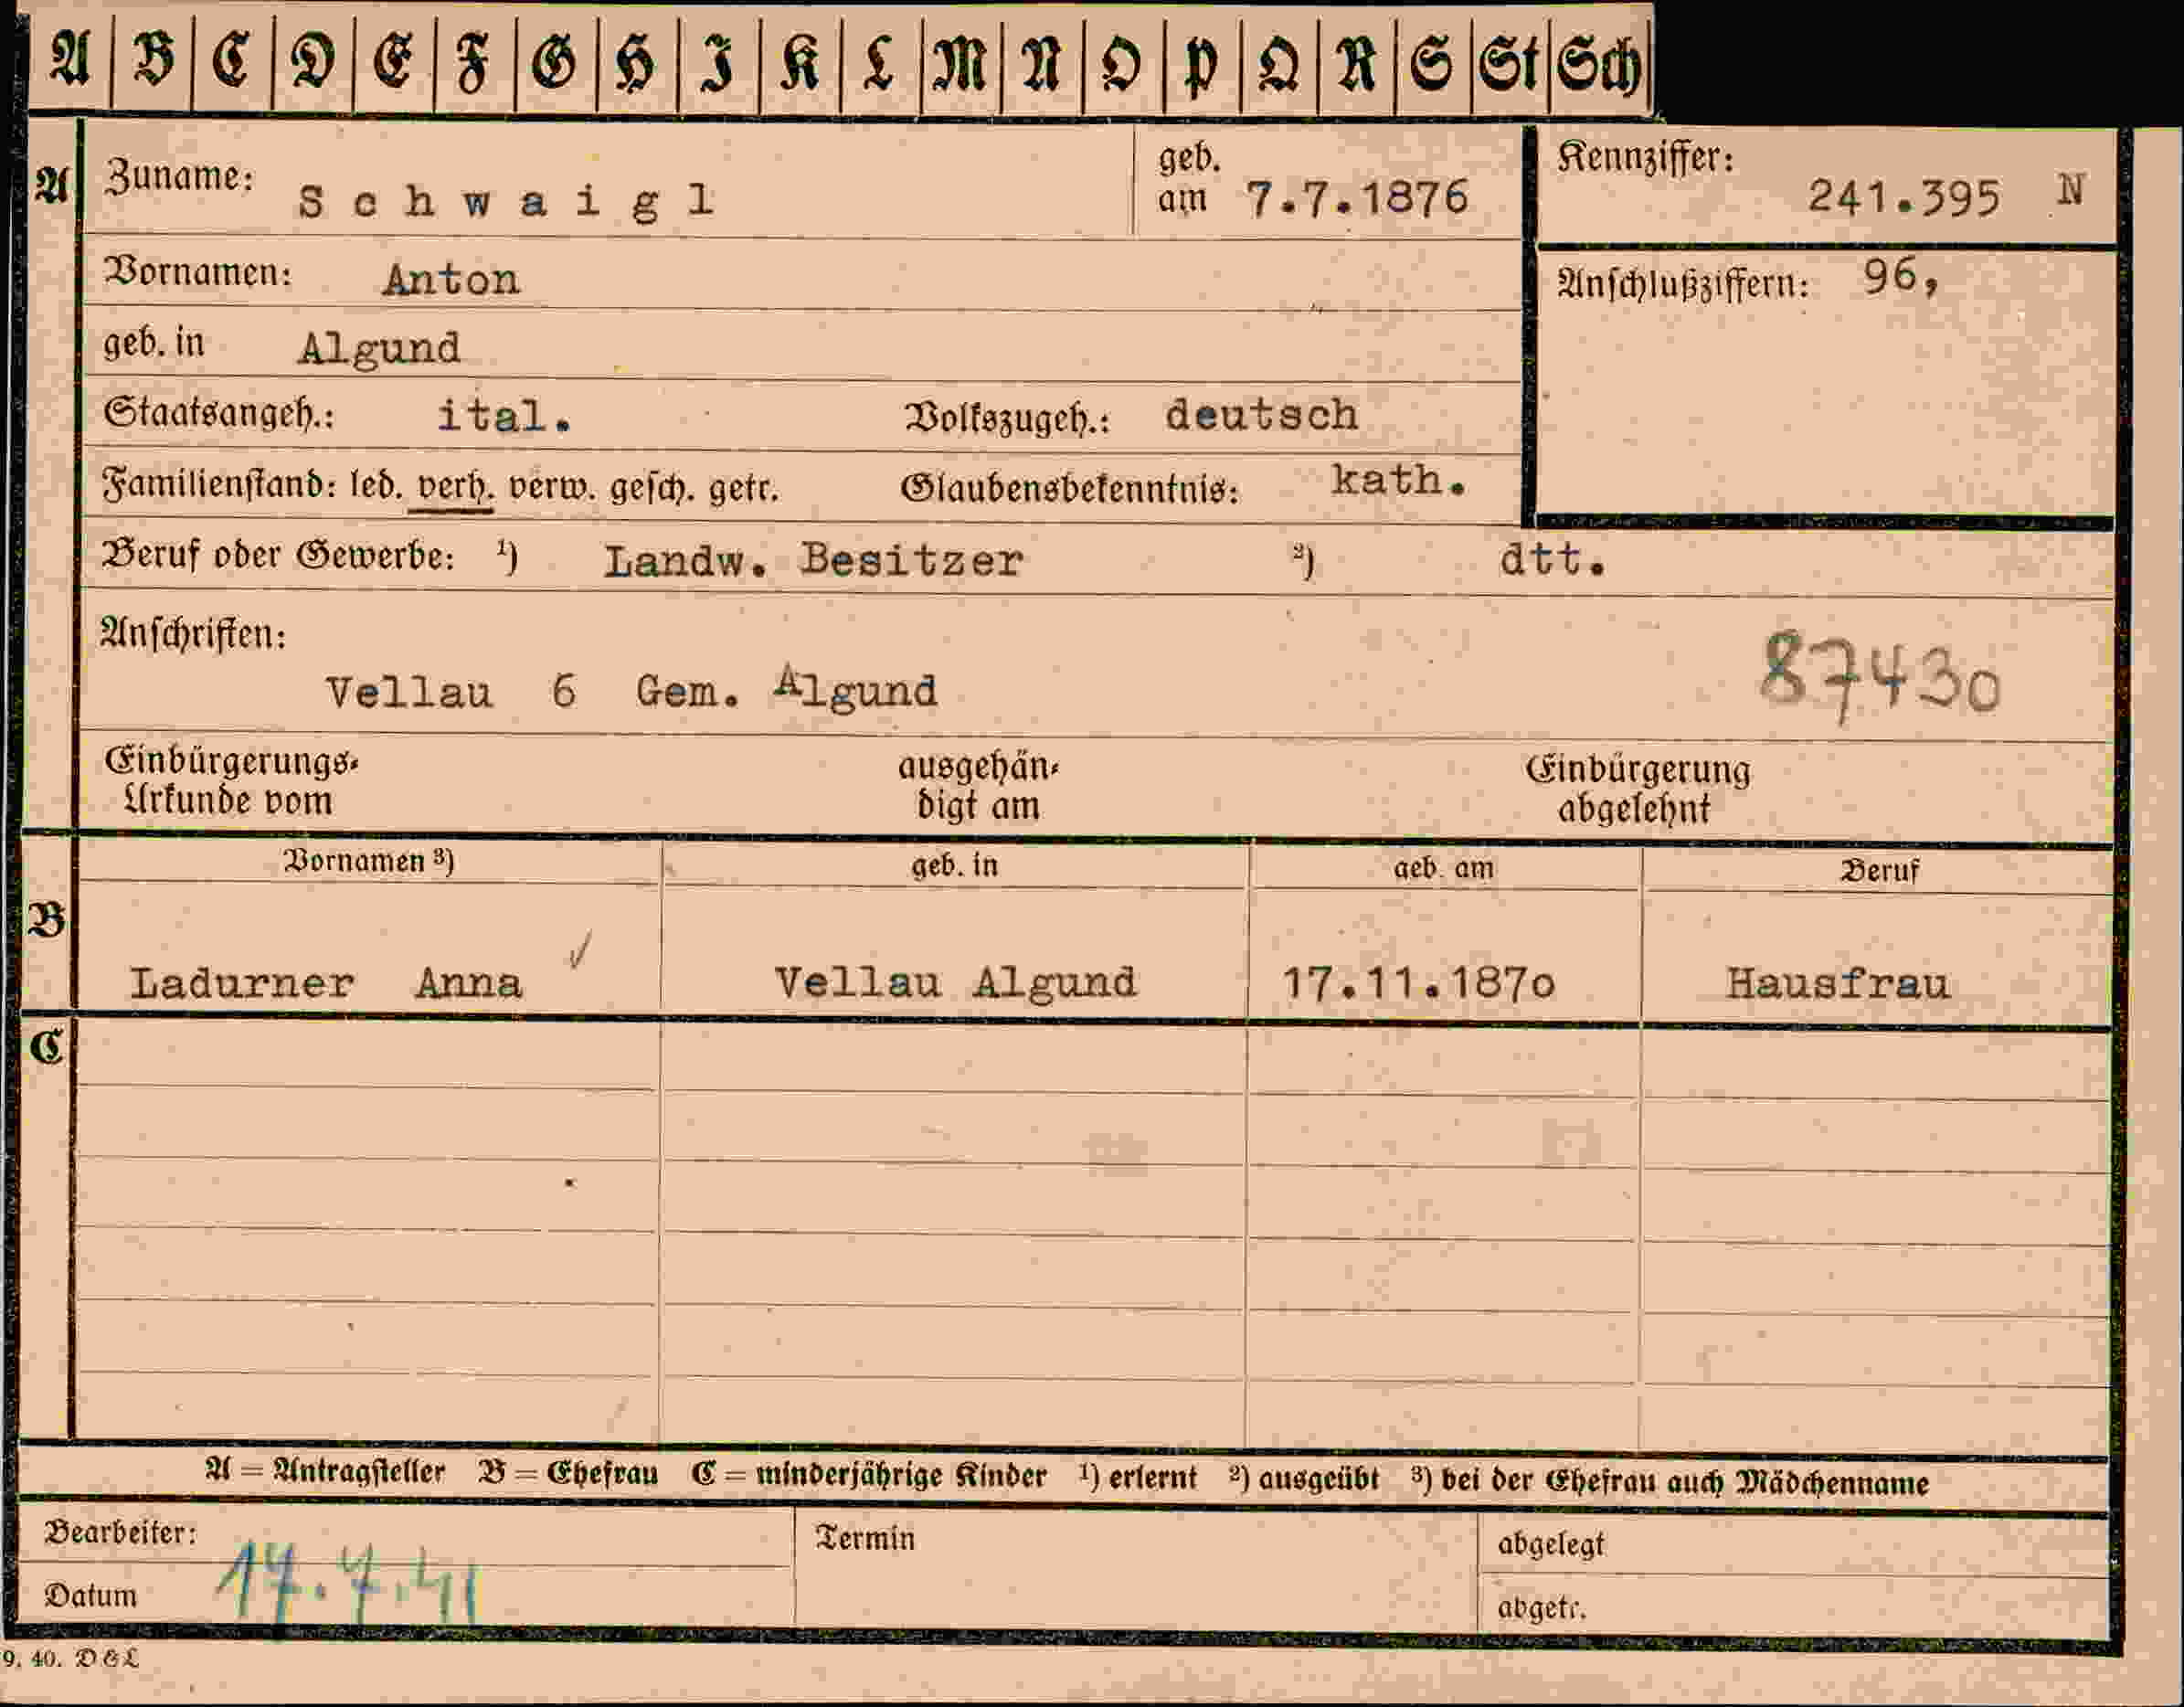 A B C D E F G H I K L M N O P Q R S St Sch
A Zuname: Schwaigl geb. am 7.7.1876 Kennziffer: 241.395 N
Vornamen: Anton Anschlußziffern: 96,
geb. in Algund
Staatsangeh.: ital. Volkszugeh.: deutsch
Familienstand: led. verh. verw. gesch. getr. Glaubensbekenntnis: kath.
Beruf oder Gewerbe: ¹) Landw. Besitzer ²) dtt.
Anschriften:
Vellau 6 Gem. Algund 87430
Einbürgerungs- ausgehän- Einbürgerung
Urkunde vom digt am abgelehnt
Vornamen ³) geb. in geb. am Beruf
B
Ladurner Anna Vellau Algund 17.11.187o Hausfrau
C
A = Antragsteller B = Ehefrau C = minderjährige Kinder ¹) erlernt ²) ausgeübt ³) bei der Ehefrau auch Mädchenname
Bearbeiter: Termin abgelegt
Datum 17.7.41 abgetr.
9. 40. D&L